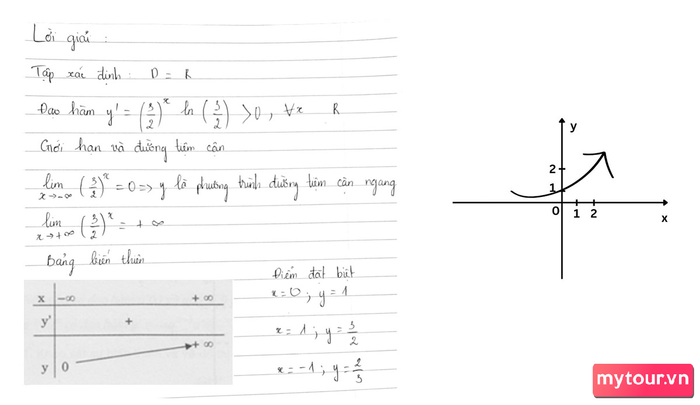 Lời giải :
Tập xác định : D = R
Đạo hàm y' = (3/2)^x ln (3/2) > 0, ∀x R
Giới hạn và đường tiệm cận
lim x→-∞ (3/2)^x = 0 => y là phương trình đường tiệm cận ngang
lim x→+∞ (3/2)^x = +∞
Bảng biến thiên
x -∞ +∞
y' +
+∞
y 0
Điểm đặt biệt
x=0 ; y=1
x=1 ; y=3/2
x=-1 ; y=2/3
y
2
1
0 1 2 x
mytour.vn